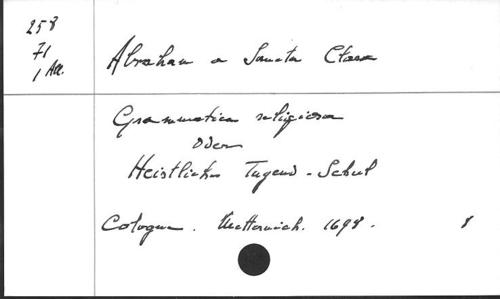 258
71
1 All.
Abraham a Sancta Clara
Grammatica religiosa
oder
Heistliches Tugend-Schul
Cologne. Metternich. 1698. 8